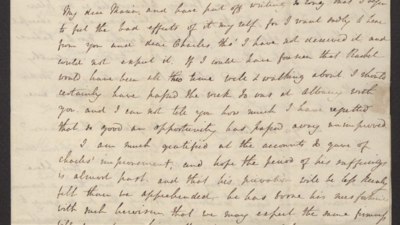 My dear Maria, and have put off writing so long that I begin
to feel the bad effects of it my self. for I want sadly to hear
from you and dear Charles, tho' I have not deserved it and
could not expect it. If I could have foreseen that Rachel
would have been all this time well & walking about I think
certainly have passed the week I was at albany with
you. and I can not tell you how much I have regretted
that so good an opportunity has passed away unimproved
I am much gratified at the accounts you gave of
Charles' improvement, and hope the period of his sufferings
is almost past, and that his privation will be less
than we apprehended. he has borne his misfortune
with much heroism that we may expect the same